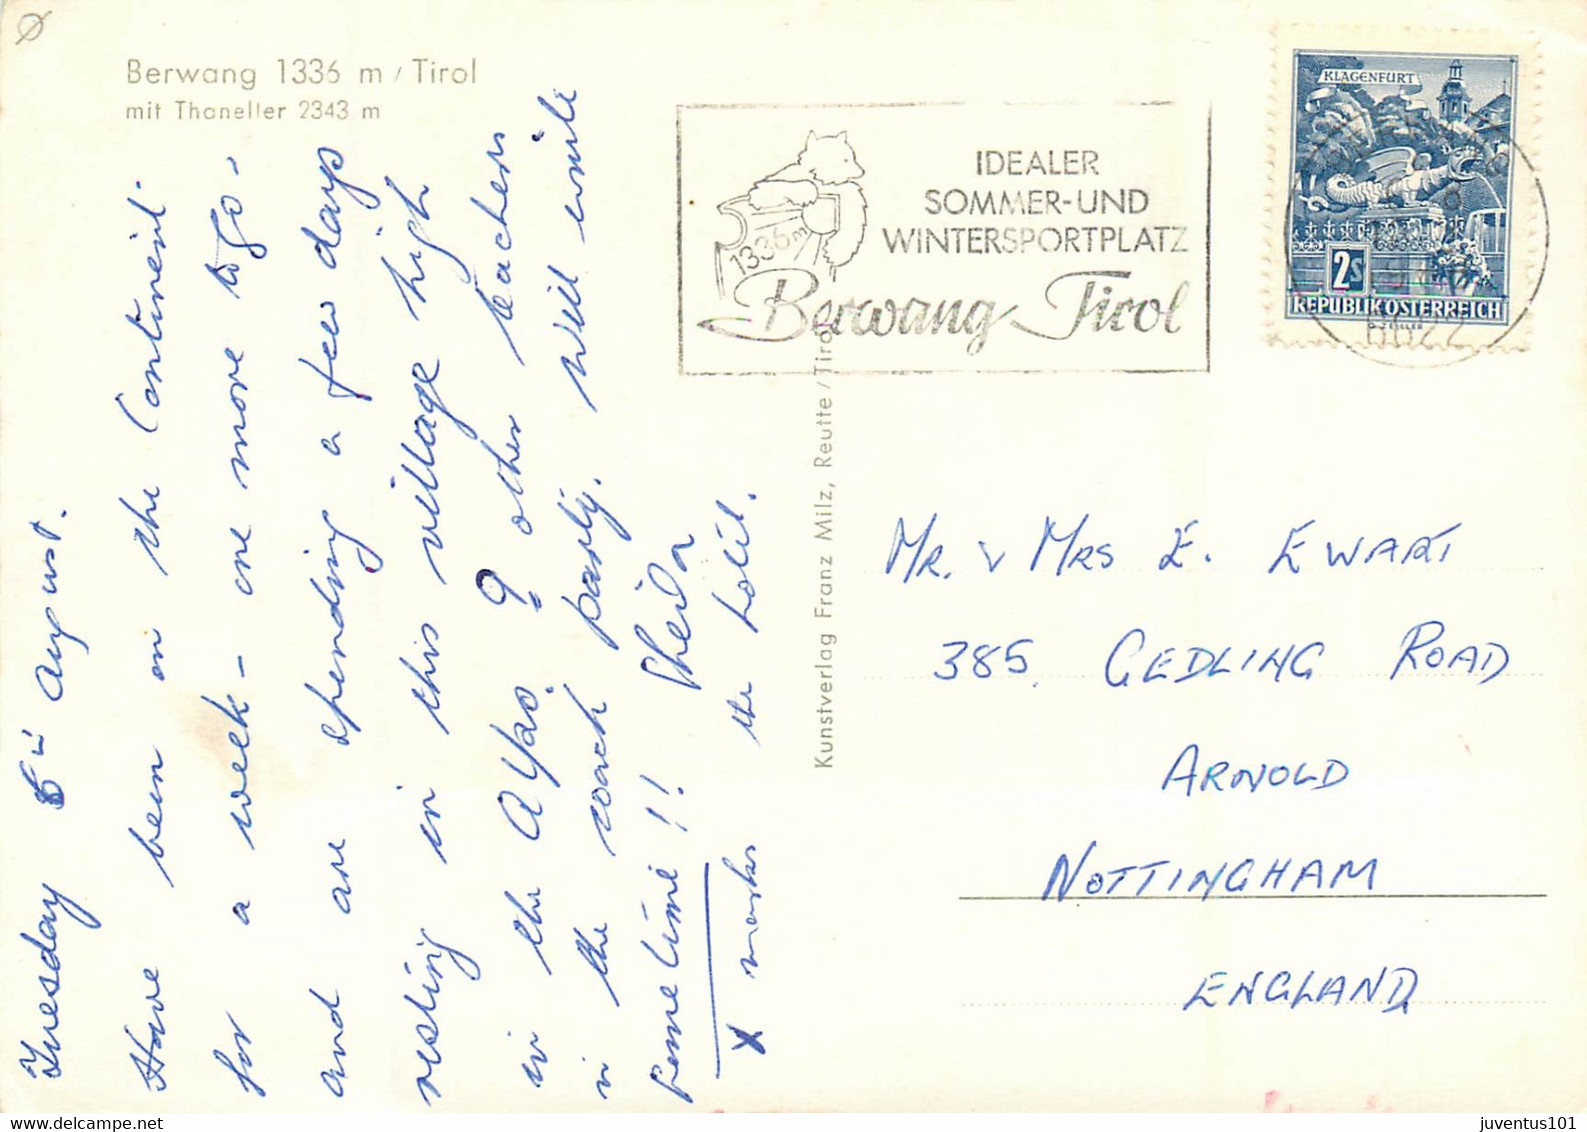 Berwang 1336 m / Tirol
mit Thaneller 2343 m
IDEALER
SOMMER-UND
WINTERSPORTPLATZ
1336m
Berwang Tirol
KLAGENFURT
2s
REPUBLIK ÖSTERREICH
6622
Tuesday 5th August.
Have been on the Continent
for a week - one more to go -
and are spending a few days
resting in this village high
in the Alps. 9 other teachers
in the coach party. Will write
sometime!! Sheila
x marks the hotel.
Kunstverlag Franz Milz, Reutte/Tirol
MR. & MRS E. EWART
385, GEDLING ROAD
ARNOLD
NOTTINGHAM
ENGLAND
juventus101